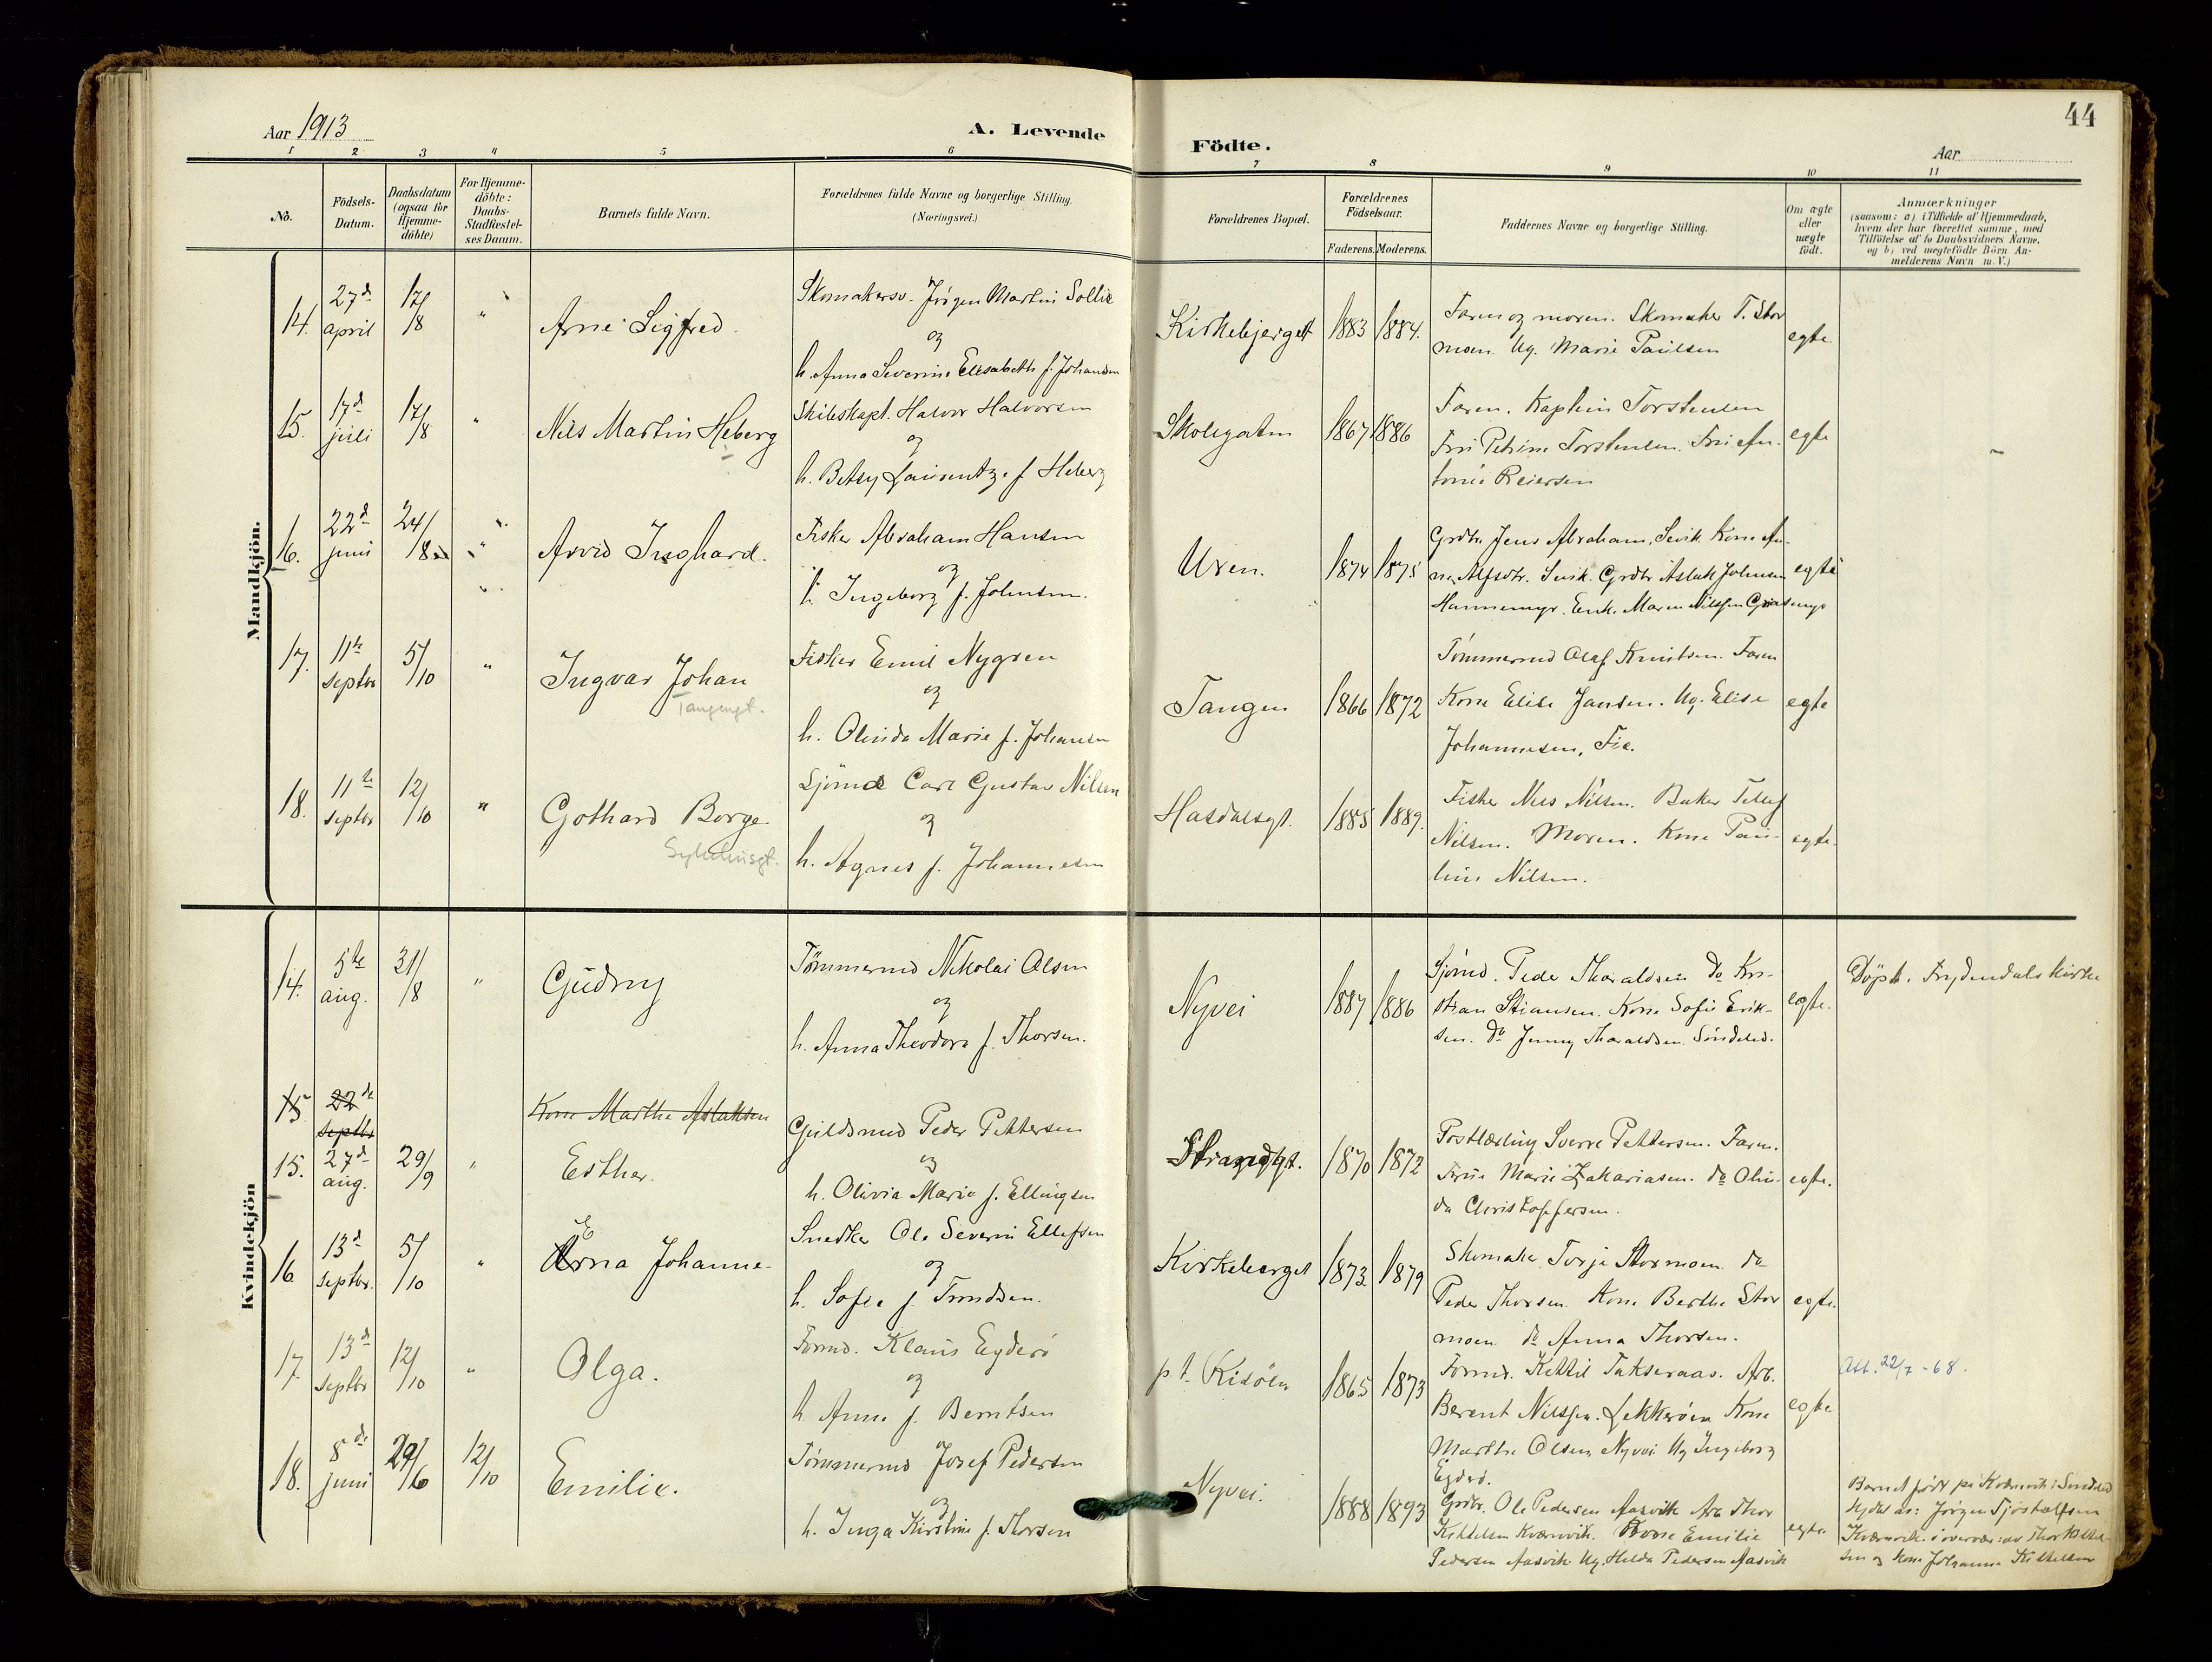 Aar 1913
A. Levende
Födte.
44
Aar
1 2 3 4 5 6 7 8 9 10 11
No.
Födsels-
Datum.
Daabsdatum
(ogsaa for
Hjemme-
döbte)
For Hjemme-
döbte:
Daabs-
Stadfæstel-
ses Datum.
Barnets fulde Navn.
Forældrenes fulde Navne og borgerlige Stilling.
(Næringsvei.)
Forældrenes Bopæl.
Forældrenes
Födselsaar.
Faderens.
Moderens.
Faddernes Navne og borgerlige Stilling.
Om ægte
eller
uægte
födt.
Anmærkninger
(saasom: a) i Tilfælde af Hjemmedaab,
hvem der har forrettet samme, med
Tilföielse af to Daabsvidners Navne,
og b) ved uægtefödte Börn An-
melderens Navn m. V.)
Mandkjön.
14.
27d
april
17/8
"
Arne Sigfred.
Skomakersv. Jörgen Martin Sollie
og
h. Anna Severine Elisabeth f. Johansen
Kirkebjerget
1883
1884.
Faren og moren. Skomaker T. Stor
moen. Ug. Marie Paulsen
egte
15.
17d
juli
17/8
"
Nils Martin Heberg
Skibskapt. Halvor Halvorsen
og
h. Betsy Laurentze f. Heberg
Skolegaten
1867
1886
Faren. Kaptein Torstensen
Fru Petrine Torstensen. Fru An-
tonie Reiersen
egte
16.
22d
juni
24/8
"
Arvid Inghard.
Fisker Abraham Hansen
og
h. Ingeborg f. Johnsen.
Uren.
1874
1875
Grdbr. Jens Abraham. Sevik Kone An-
na Alfsdtr. Sevik. Grdbr Aslak Johnsen
Hammemyr. Enk. Maren Nilssen
egte
17.
11te
septbr
5/10
"
Ingvar Johan
Tangengt.
Fisker Emil Nygren
og
h. Olinda Marie f. Johansen
Tangen
1866
1872
Tömmermd Olaf Knutsen. Faren
Kone Elise Jansen. Ug. Elise
Johannesen, Fie.
egte
18.
11te
septbr
12/10
"
Gothard Borge
Sykehusgt.
Sjömd Carl Gustav Nilsen
og
h. Agnes f. Johannesen
Hasdalsgt.
1885
1889.
Fisker Nils Nilsen. Baker Tellef
Nilsen. Moren. Kone Pau-
line Nilsen.
egte.
Kvindekjön
14.
5te
aug.
31/8
"
Gudny
Tömmermd Nikolai Olsen
og
h. Anna Theodora f. Thorsen.
Nyvei
1887
1886
Sjömd. Peder Tharaldsen Do Kri-
stian Stiansen. Kone Sofie Erik-
sen. Do Jenny Tharaldsen Söndeled.
egte.
Döpt i Frydendals kirke
15
22de
septbr
Kone Marthe Aslaksen
15.
27d
aug.
29/9
"
Esther.
Guldsmed Peder Pettersen
og
h. Olivia Marie f. Ellingsen
Strandgt.
1870
1872
Postlærling Sverre Pettersen. Faren.
Frue Marie Zakariasen. do Olin-
da Christoffersen.
egte.
16
13d
septbr.
5/10
"
Erna Johanne
Snedker Ole Severin Ellefsen
og
h. Sofie f. Trondsen.
Kirkeberget
1873
1879
Skomaker Torje Stormoen do
Peder Thorsen. Kone Berthe Stor
moen do Anna Thorsen.
egte.
17.
13d
septbr
12/10
"
Olga.
Formd. Klaus Egderö
og
h. Anna f. Berntsen
p.t. Risöen
1865
1873
Formd. Kittil Takseraas. Arb.
Berent Nilssen. Lekkeröen Kone
Marthe Olsen, Nyvei Ug Ingeborg
Egderö.
egte
Att. 22/7-68.
18.
8de
juni
29/6
12/10
Emilie.
Tömmermd Josef Pedersen
og
h. Inga Kirstine f. Thorsen
Nyvei.
1888
1893
Grdbr. Ole Pedersen Aasvik Arb Thor
Kittelsen Kværnvik. Kone Emilie
Pedersen Aasvik Ug. Hilda Pedersen Aasvik
egte.
Barnet födt på Kværnvik i Söndeled
Hjdbt av: Jörgen Tjöstolfsen
Kværnvik i overvær av Thor Kittel-
sen og kone Johanna Kittelsen